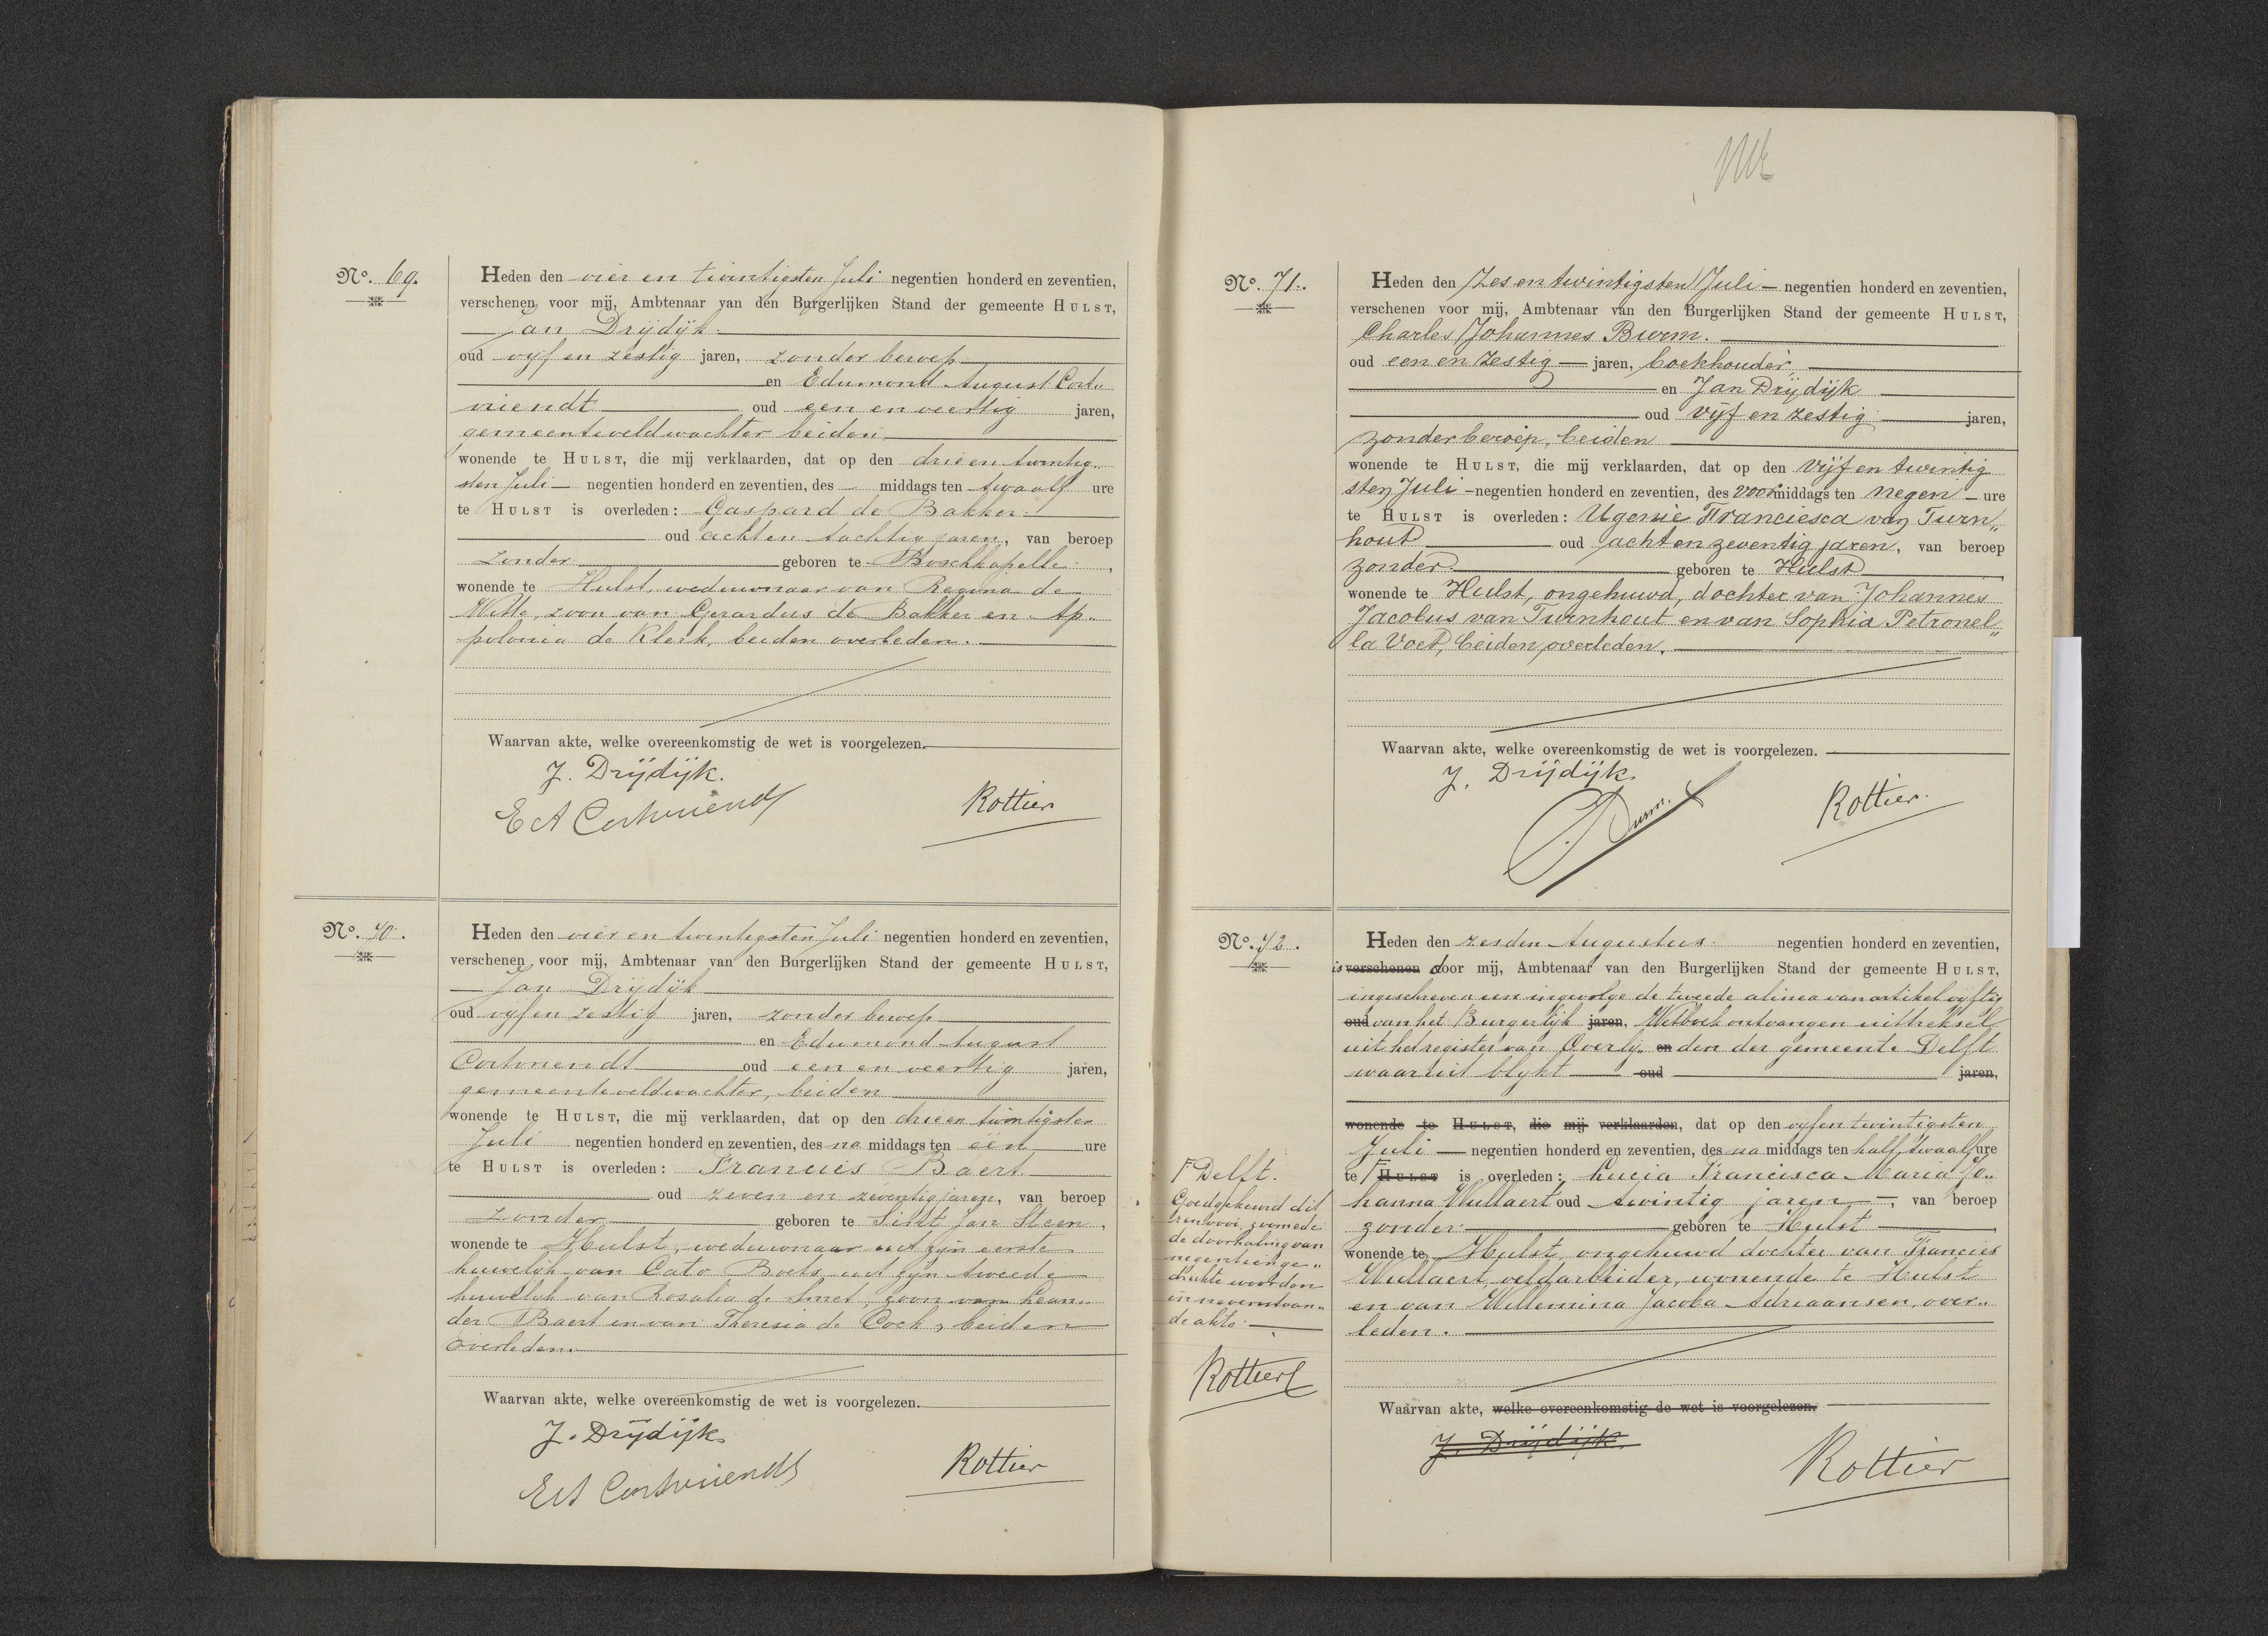 No. 69.
Heden den vier en twintigsten Juli negentien honderd en zeventien,
verschenen voor mij, Ambtenaar van den Burgerlijken Stand der gemeente HULST,
Jan Drijdijk
oud vijf en zestig jaren, zonder beroep
en Edumond August Cort„
vriendt oud een en veertig jaren,
gemeenteveldwachter beiden
wonende te HULST, die mij verklaarden, dat op den drie en twintig„
sten Juli negentien honderd en zeventien, des middags ten twaalf ure
te HULST is overleden: Gaspard de Bakker
oud acht en tachtig jaren, van beroep
zonder geboren te Boschkapelle,
wonende te Hulst, weduwnaar van Regina de
Witte, zoon van Gerardus de Bakker en Ap„
polonia de Klerk, beiden overleden.
Waarvan akte, welke overeenkomstig de wet is voorgelezen.
J. Drijdijk.
E A Cortvriendt
Rottier
No. 70.
Heden den vier en twintigsten Juli negentien honderd en zeventien,
verschenen voor mij, Ambtenaar van den Burgerlijken Stand der gemeente HULST,
Jan Drijdijk
oud vijf en zestig jaren, zonder beroep
en Edumond August
Cortvriendt oud een en veertig jaren,
gemeenteveldwachter, beiden
wonende te HULST, die mij verklaarden, dat op den drie en twintigsten
Juli negentien honderd en zeventien, des na middags ten één ure
te HULST is overleden: Francies Baert
oud zeven en zeventig jaren, van beroep
zonder geboren te Sint Jan Steen,
wonende te Hulst, weduwnaar uit zijn eerste
huwelijk van Cato Boets, uit zijn tweede
huwelijk van Rosalia de Smet, zoon van Lean„
der Baert en van Theresia de Cock, beiden
overleden.
Waarvan akte, welke overeenkomstig de wet is voorgelezen.
J. Drijdijk
E A Cortvriendt
Rottier
No. 71.
Heden den Zes en twintigsten Juli negentien honderd en zeventien,
verschenen voor mij, Ambtenaar van den Burgerlijken Stand der gemeente HULST,
Charles Johannes Burm.
oud een en zestig jaren, boekhouder
en Jan Drijdijk
oud vijf en zestig jaren,
zonder beroep, beiden
wonende te HULST, die mij verklaarden, dat op den vijf en twintig
sten Juli negentien honderd en zeventien, des voormiddags ten negen ure
te HULST is overleden: Ugenie Franciesca van Turn„
hout oud acht en zeventig jaren, van beroep
zonder geboren te Hulst
wonende te Hulst, ongehuwd, dochter van Johannes
Jacobus van Turnhout en van Sophia Petronel„
la Voet, beiden overleden.
Waarvan akte, welke overeenkomstig de wet is voorgelezen.
J. Drijdijk
Burm.
Rottier.
No. 72.
Heden den zesden Augustus negentien honderd en zeventien,
is verschenen door mij, Ambtenaar van den Burgerlijken Stand der gemeente HULST,
ingeschreven een ingevolge de tweede alinea van artikel vijftig
oud van het Burgerlijk jaren, Wetboek ontvangen uittreksel
uit het register van Overlij„ en den der gemeente Delft
waaruit blijkt oud jaren,
wonende te HULST, die mij verklaarden, dat op den vijfentwintigsten
Juli negentien honderd en zeventien, des na middags ten half twaalf ure
te HULST is overleden: Lucia Francisca Maria Jo„
hanna Wullaert oud twintig jaren, van beroep
zonder geboren te Hulst
wonende te Hulst, ongehuwd dochter van Francies
Wullaert, veldarbeider, wonende te Hulst
en van Willemina Jacoba Adriaansen, over„
leden.
Waarvan akte, welke overeenkomstig de wet is voorgelezen.
J. Drijdijk
Rottier
Delft.
Goedgekeurd dit
renvooi, zoomede
de doorhaling van
negentien ge„
drukte woorden
in nevenstaan„
de akte.
Rottier